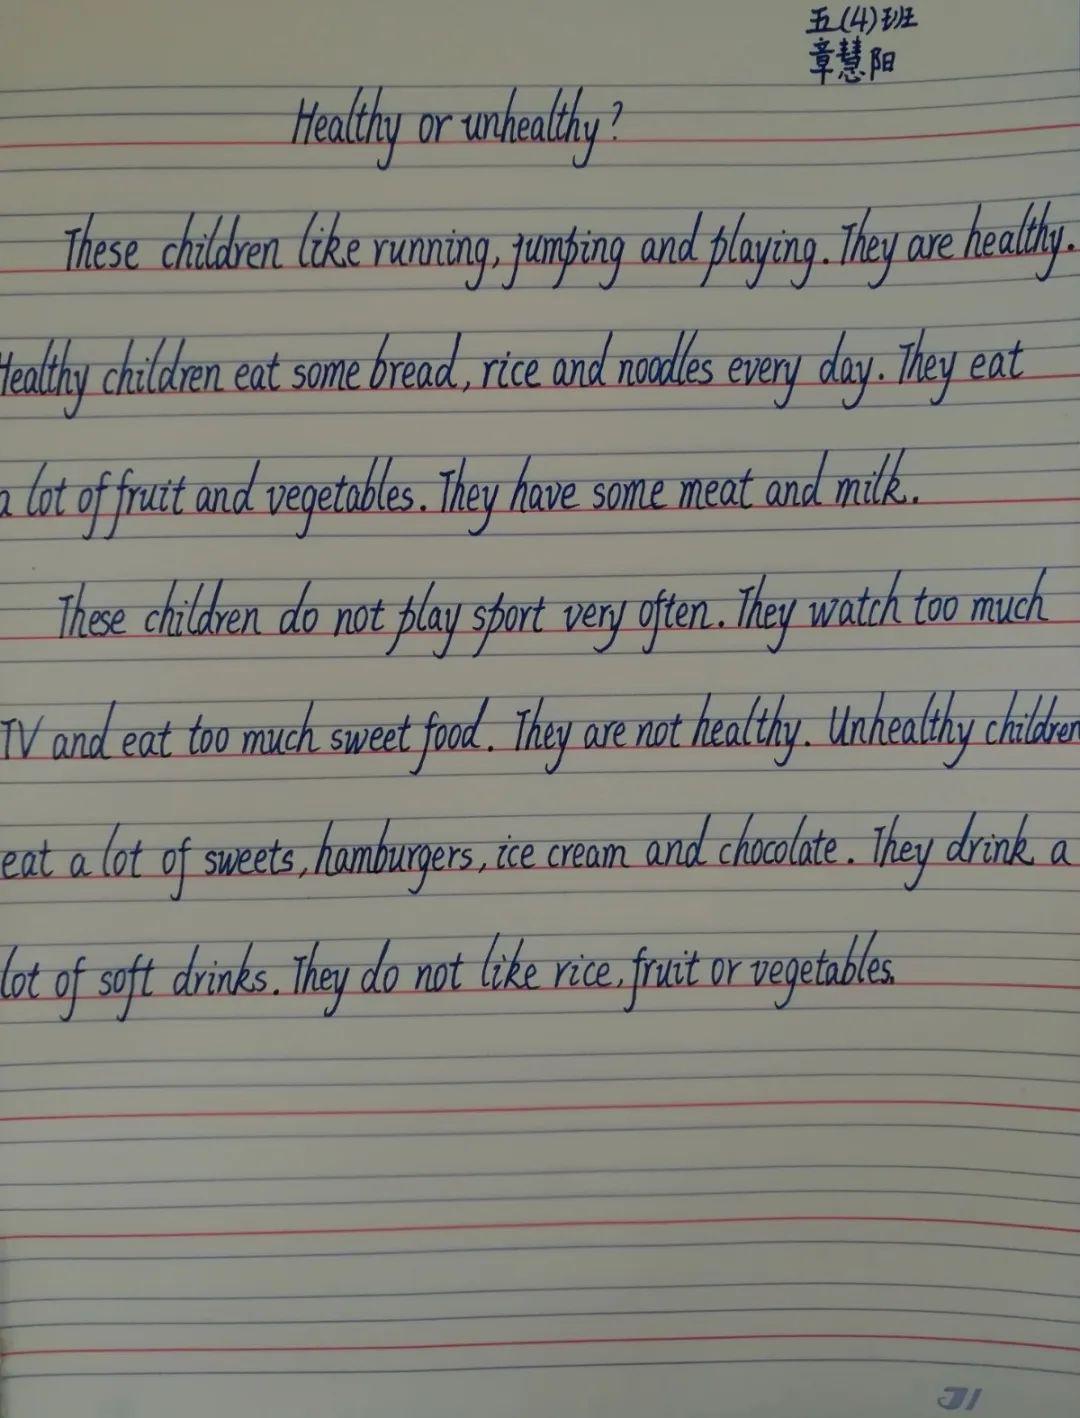 五(4)班
章慧阳
Healthy or unhealthy?
These children like running, jumping and playing. They are healthy.
Healthy children eat some bread, rice and noodles every day. They eat
a lot of fruit and vegetables. They have some meat and milk.
These children do not play sport very often. They watch too much
TV and eat too much sweet food. They are not healthy. Unhealthy children
eat a lot of sweets, hamburgers, ice cream and chocolate. They drink a
lot of soft drinks. They do not like rice, fruit or vegetables.